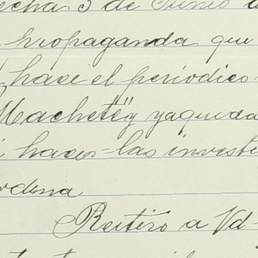 echa 3 de Junio
propaganda que
hace el periodico
Machete" y ya queda
hacer las investi
rdena
Reitero a Vd-